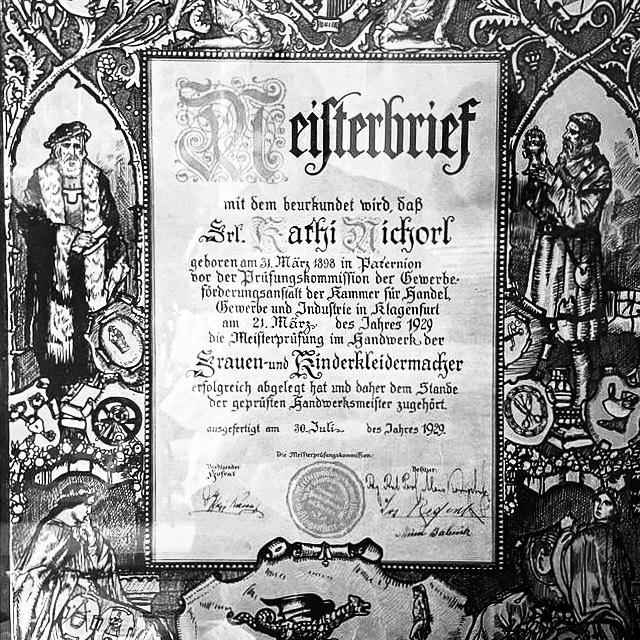 Meisterbrief
mit dem beurkundet wird, daß
Frl. Kathi Nichorl
geboren am 31. März 1898 in Paternion
vor der Prüfungskommission der Gewerbe-
förderungsanstalt der Kammer für Handel,
Gewerbe und Industrie in Klagenfurt
am 21. März des Jahres 1929
die Meisterprüfung im Handwerk der
Frauen- und Kinderkleidermacher
erfolgreich abgelegt hat und daher dem Stande
der geprüften Handwerksmeister zugehört.
ausgefertigt am 30. Juli des Jahres 1929.
Die Meisterprüfungskommission:
Vorsitzender
Beisitzer:
Hofrat